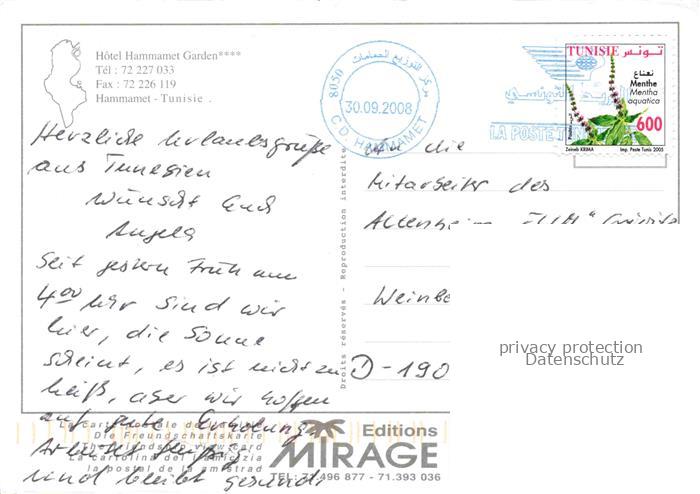 Hôtel Hammamet Garden****
Tél : 72 227 033
Fax : 72 226 119
Hammamet - Tunisie .
Herzliche Urlaubsgrüße
aus Tunesien
wünscht Euch
Angela
Seit gestern Früh um
4⁰⁰ Uhr sind wir
hier, die Sonne
scheint, es ist nicht zu
heiß, aber wir hoffen
auf gute Erholung.
Arbeitet fleißig
und bleibt gesund.
La carte postale de
Die Freundschaftskarte
La cartolina dell'amicizia
la postal de la amistad
Droits réservés - Reproduction interdite
Editions
MIRAGE
TEL: 71.496 877 - 71.393 036
مركز التوزيع الحمامات
8050
30.09.2008
C.D. HAMMAMET
البريد التونسي
LA POSTE TUN
TUNISIE تونس
نعناع
Menthe
Mentha
aquatica
600
Zeineb KRIMA
Imp. Poste Tunis 2005
An die
Mitarbeiter des
Weinbe
D-190
privacy protection
Datenschutz